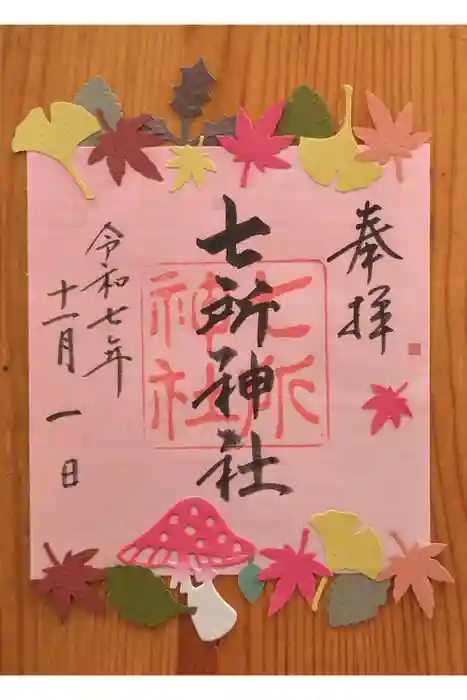 奉拝
七所神社
七所神社
令和七年
十一月一日